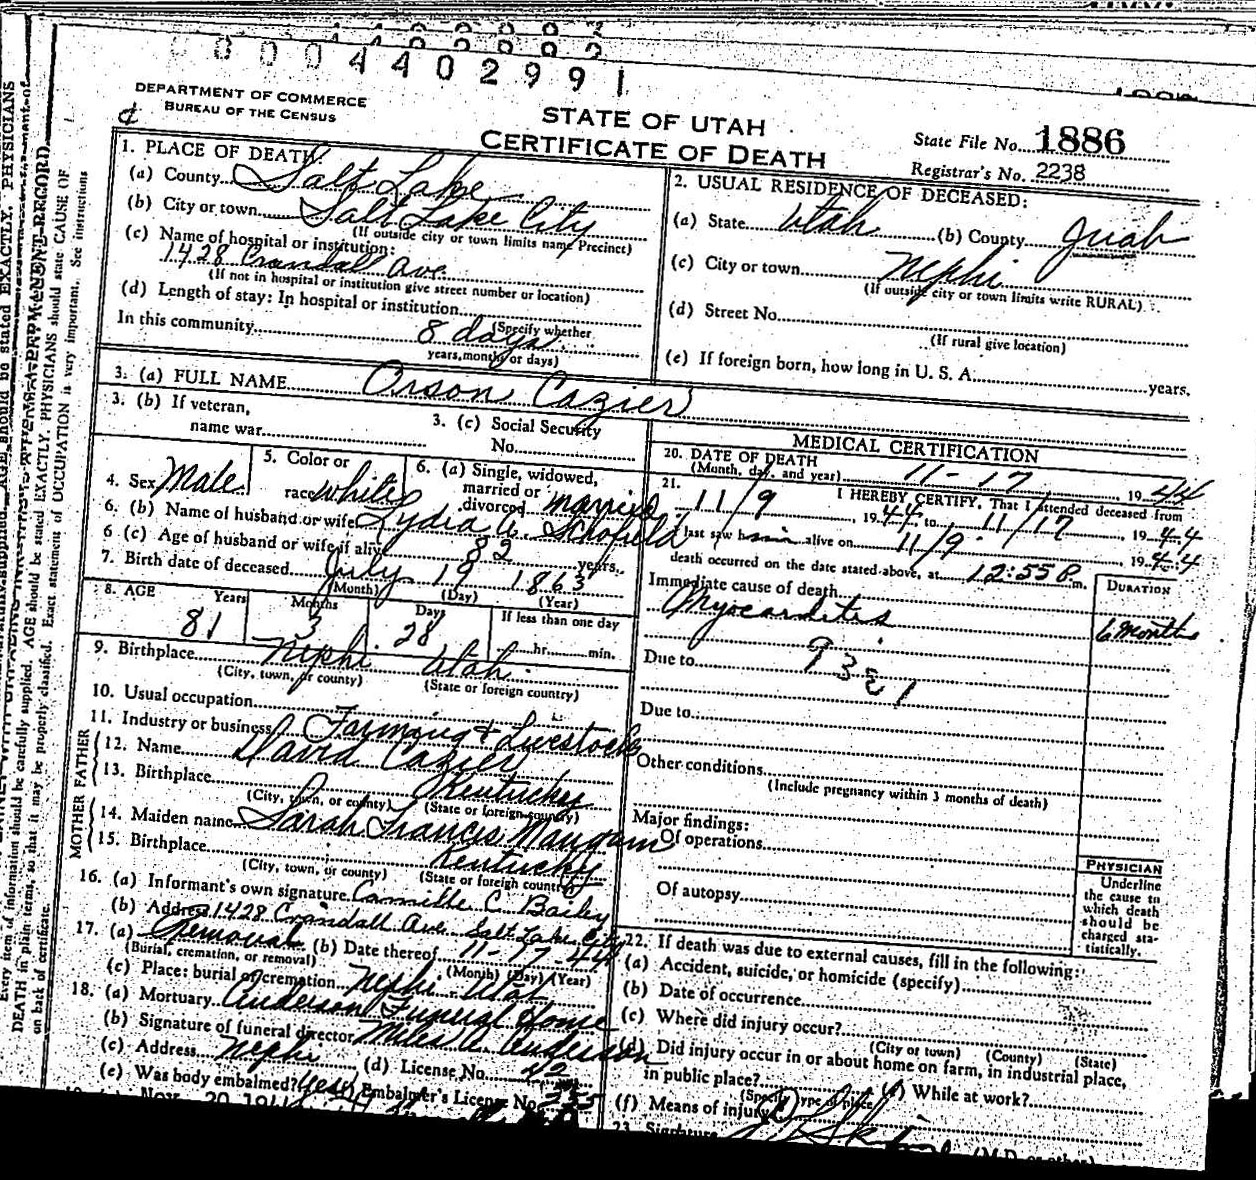 000440299 1
DEPARTMENT OF COMMERCE
BUREAU OF THE CENSUS
STATE OF UTAH
CERTIFICATE OF DEATH
State File No. 1886
Registrar's No. 2238
1. PLACE OF DEATH:
(a) County Salt Lake
(b) City or town Salt Lake City
(If outside city or town limits name Precinct)
(c) Name of hospital or institution:
1428 Crandall Ave.
(If not in hospital or institution give street number or location)
(d) Length of stay: In hospital or institution
(Specify whether
In this community 8 days
years, months or days)
2. USUAL RESIDENCE OF DECEASED:
(a) State Utah (b) County Juab
(c) City or town Nephi
(If outside city or town limits write RURAL)
(d) Street No.
(If rural give location)
(e) If foreign born, how long in U. S. A. years.
3. (a) FULL NAME Orson Cazier
3. (b) If veteran,
name war
3. (c) Social Security
No.
4. Sex Male
5. Color or
race white
6. (a) Single, widowed,
married or
divorced married
6. (b) Name of husband or wife Lydia A. Schofield
6 (c) Age of husband or wife if alive 82 years.
7. Birth date of deceased July 19 1863
(Month) (Day) (Year)
8. AGE Years Months Days If less than one day
81 3 28 hr. min.
9. Birthplace Nephi Utah
(City, town, or county) (State or foreign country)
10. Usual occupation
11. Industry or business Farming & Livestock
FATHER
12. Name David Cazier
13. Birthplace Kentucky
(City, town, or county) (State or foreign country)
MOTHER
14. Maiden name Sarah Frances Maugum
15. Birthplace Kentucky
(City, town, or county) (State or foreign country)
16. (a) Informant's own signature Camille C. Baily
(b) Address 1428 Crandall Ave. Salt Lake City
17. (a) Removal (b) Date thereof 11-17-44
(Burial, cremation, or removal) (Month) (Day) (Year)
(c) Place: burial or cremation Nephi Utah
18. (a) Mortuary Anderson Funeral Home
(b) Signature of funeral director Miles A. Anderson
(c) Address Nephi (d) License No. 42
(e) Was body embalmed? yes Embalmer's License No.
MEDICAL CERTIFICATION
20. DATE OF DEATH
(Month, day, and year) 11-17 1944
21. I HEREBY CERTIFY, That I attended deceased from
11/9, 1944 to 11/17, 1944
last saw him alive on 11/9 1944
death occurred on the date stated above, at 12:55 P.m.
Immediate cause of death
Myocarditis
DURATION
6 Months
Due to
Due to
Other conditions
(Include pregnancy within 3 months of death)
Major findings:
Of operations
Of autopsy
PHYSICIAN
Underline
the cause to
which death
should be
charged sta-
tistically.
22. If death was due to external causes, fill in the following:
(a) Accident, suicide, or homicide (specify)
(b) Date of occurrence
(c) Where did injury occur?
(City or town) (County) (State)
(d) Did injury occur in or about home on farm, in industrial place,
in public place?
(Specify type of place) While at work?
(f) Means of injury
23. Signature